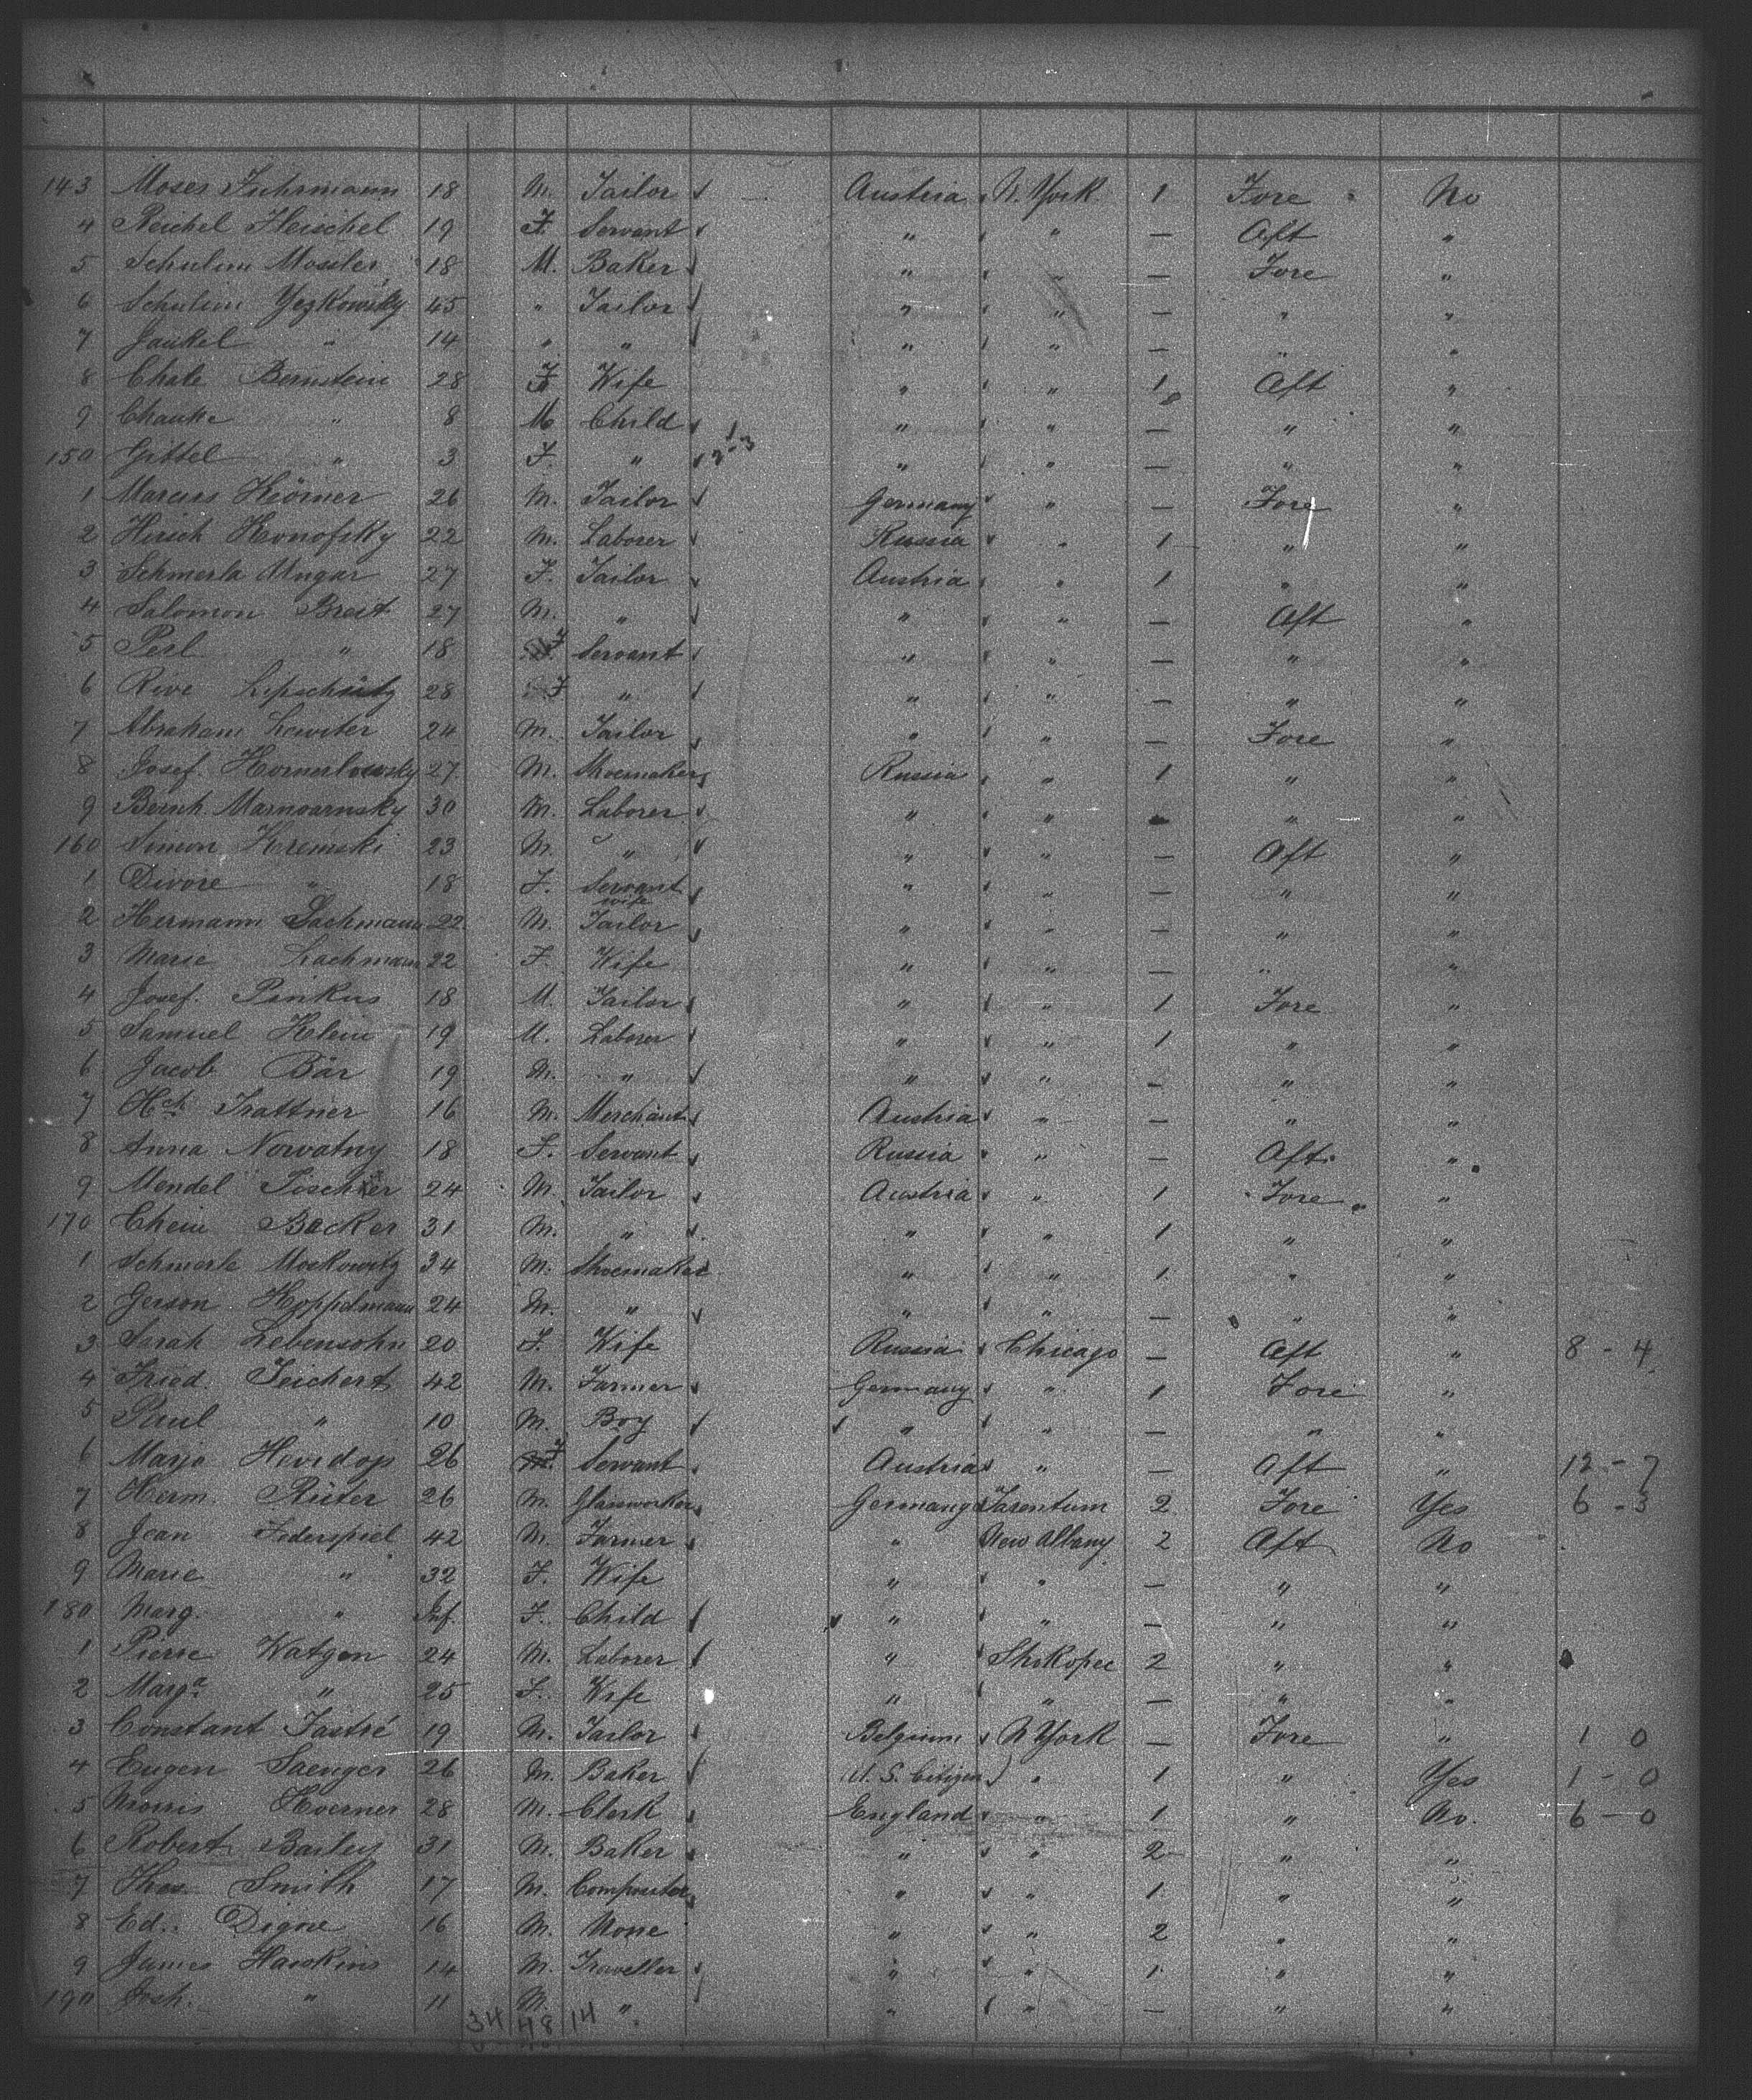 143 Moses Fuhrmann 18 M. Tailor Austria N. York 1 Fore No
4 Reichel Heischel 19 F. Servant " " — Aft "
5 Schulim Mosler 18 M. Baker " " — Fore "
6 Schulim Yezkowsky 45 " Tailor " " — " "
7 Jankel " 14 " " " " — " "
8 Chale Bernstein 28 F Wife " " 1 Aft "
9 Chauke " 8 M Child " " — " "
150 Gittel " 3 F. " " " — " "
1 Marcus Körner 26 M. Tailor Germany " — Fore "
2 Hirsch Konofsky 22 M. Laborer Russia " 1 " "
3 Schmerla Ungar 27 F. Tailor Austria " 1 " "
4 Salomon Breit 27 M. " " " — Aft "
5 Perl " 18 F Servant " " — " "
6 Rive Lipschütz 28 F " " " — " "
7 Abraham Lewiter 24 M. Tailor " " — Fore "
8 Josef. 27 M. Shoemaker Russia " 1 " "
9 Berich Marnoarnsky 30 M. Laborer " " " "
160 Simon Kremski 23 M. " " " — Aft "
1 Divore " 18 F. Servant wife " " — " "
2 Hermann Lachmann 22 M. Tailor " " — " "
3 Marie Lachmann 22 F. Wife " " — " "
4 Josef. Pinkus 18 M. Tailor " " 1 Fore "
5 Samuel Klein 19 M. Laborer " " 1 " "
6 Jacob Bär 19 M. " " " — " "
7 Hch Trattner 16 M. Merchant Austria " — " "
8 Anna Nowatny 18 F. Servant Russia " — Aft "
9 Mendel Tischler 24 M. Tailor Austria " 1 Fore "
170 Chein Backer 31 M. " " " 1 " "
1 Schmerle Moskowitz 34 M. Shoemaker " " 1 " "
2 Gerson Koppelmann 24 M. " " " — " "
3 Sarah Lebensohn 20 F. Wife Russia Chicago — Aft " 8 - 4
4 Fried. Teichert 42 M. Farmer Germany " 1 Fore "
5 Paul " 10 M. Boy " " — " "
6 Marja 26 F Servant Austria " — Aft " 12 - 7
7 Herm. Rüter 26 M. Glassworker Germany Tarentum 2 Fore Yes 6 - 3
8 Jean Federspiel 42 M. Farmer " New Albany 2 Aft No
9 Marie " 32 F. Wife " " — " "
180 Marg. " Inf. F. Child " " — " "
1 Pierre Watgen 24 M. Laborer " Shokopee 2 " "
2 Marga " 25 F. Wife " " — " "
3 Constant Tastré 19 M. Tailor Belgium N York — Fore " 1 0
4 Eugen Saenger 26 M. Baker U.S. Citizen " 1 " Yes 1 - 0
5 Morris Koerner 28 M. Clerk England " 1 " No. 6 - 0
6 Robert Bailey 31 M. Baker " " 2 " "
7 Thos Smith 17 M. Compositor " " 1 " "
8 Ed. Digne 16 M. None " " 2 " "
9 James Hawkins 14 M. Traveller " " 1 " "
190 Josh. " 11 M. " " " — " "
34 48 14